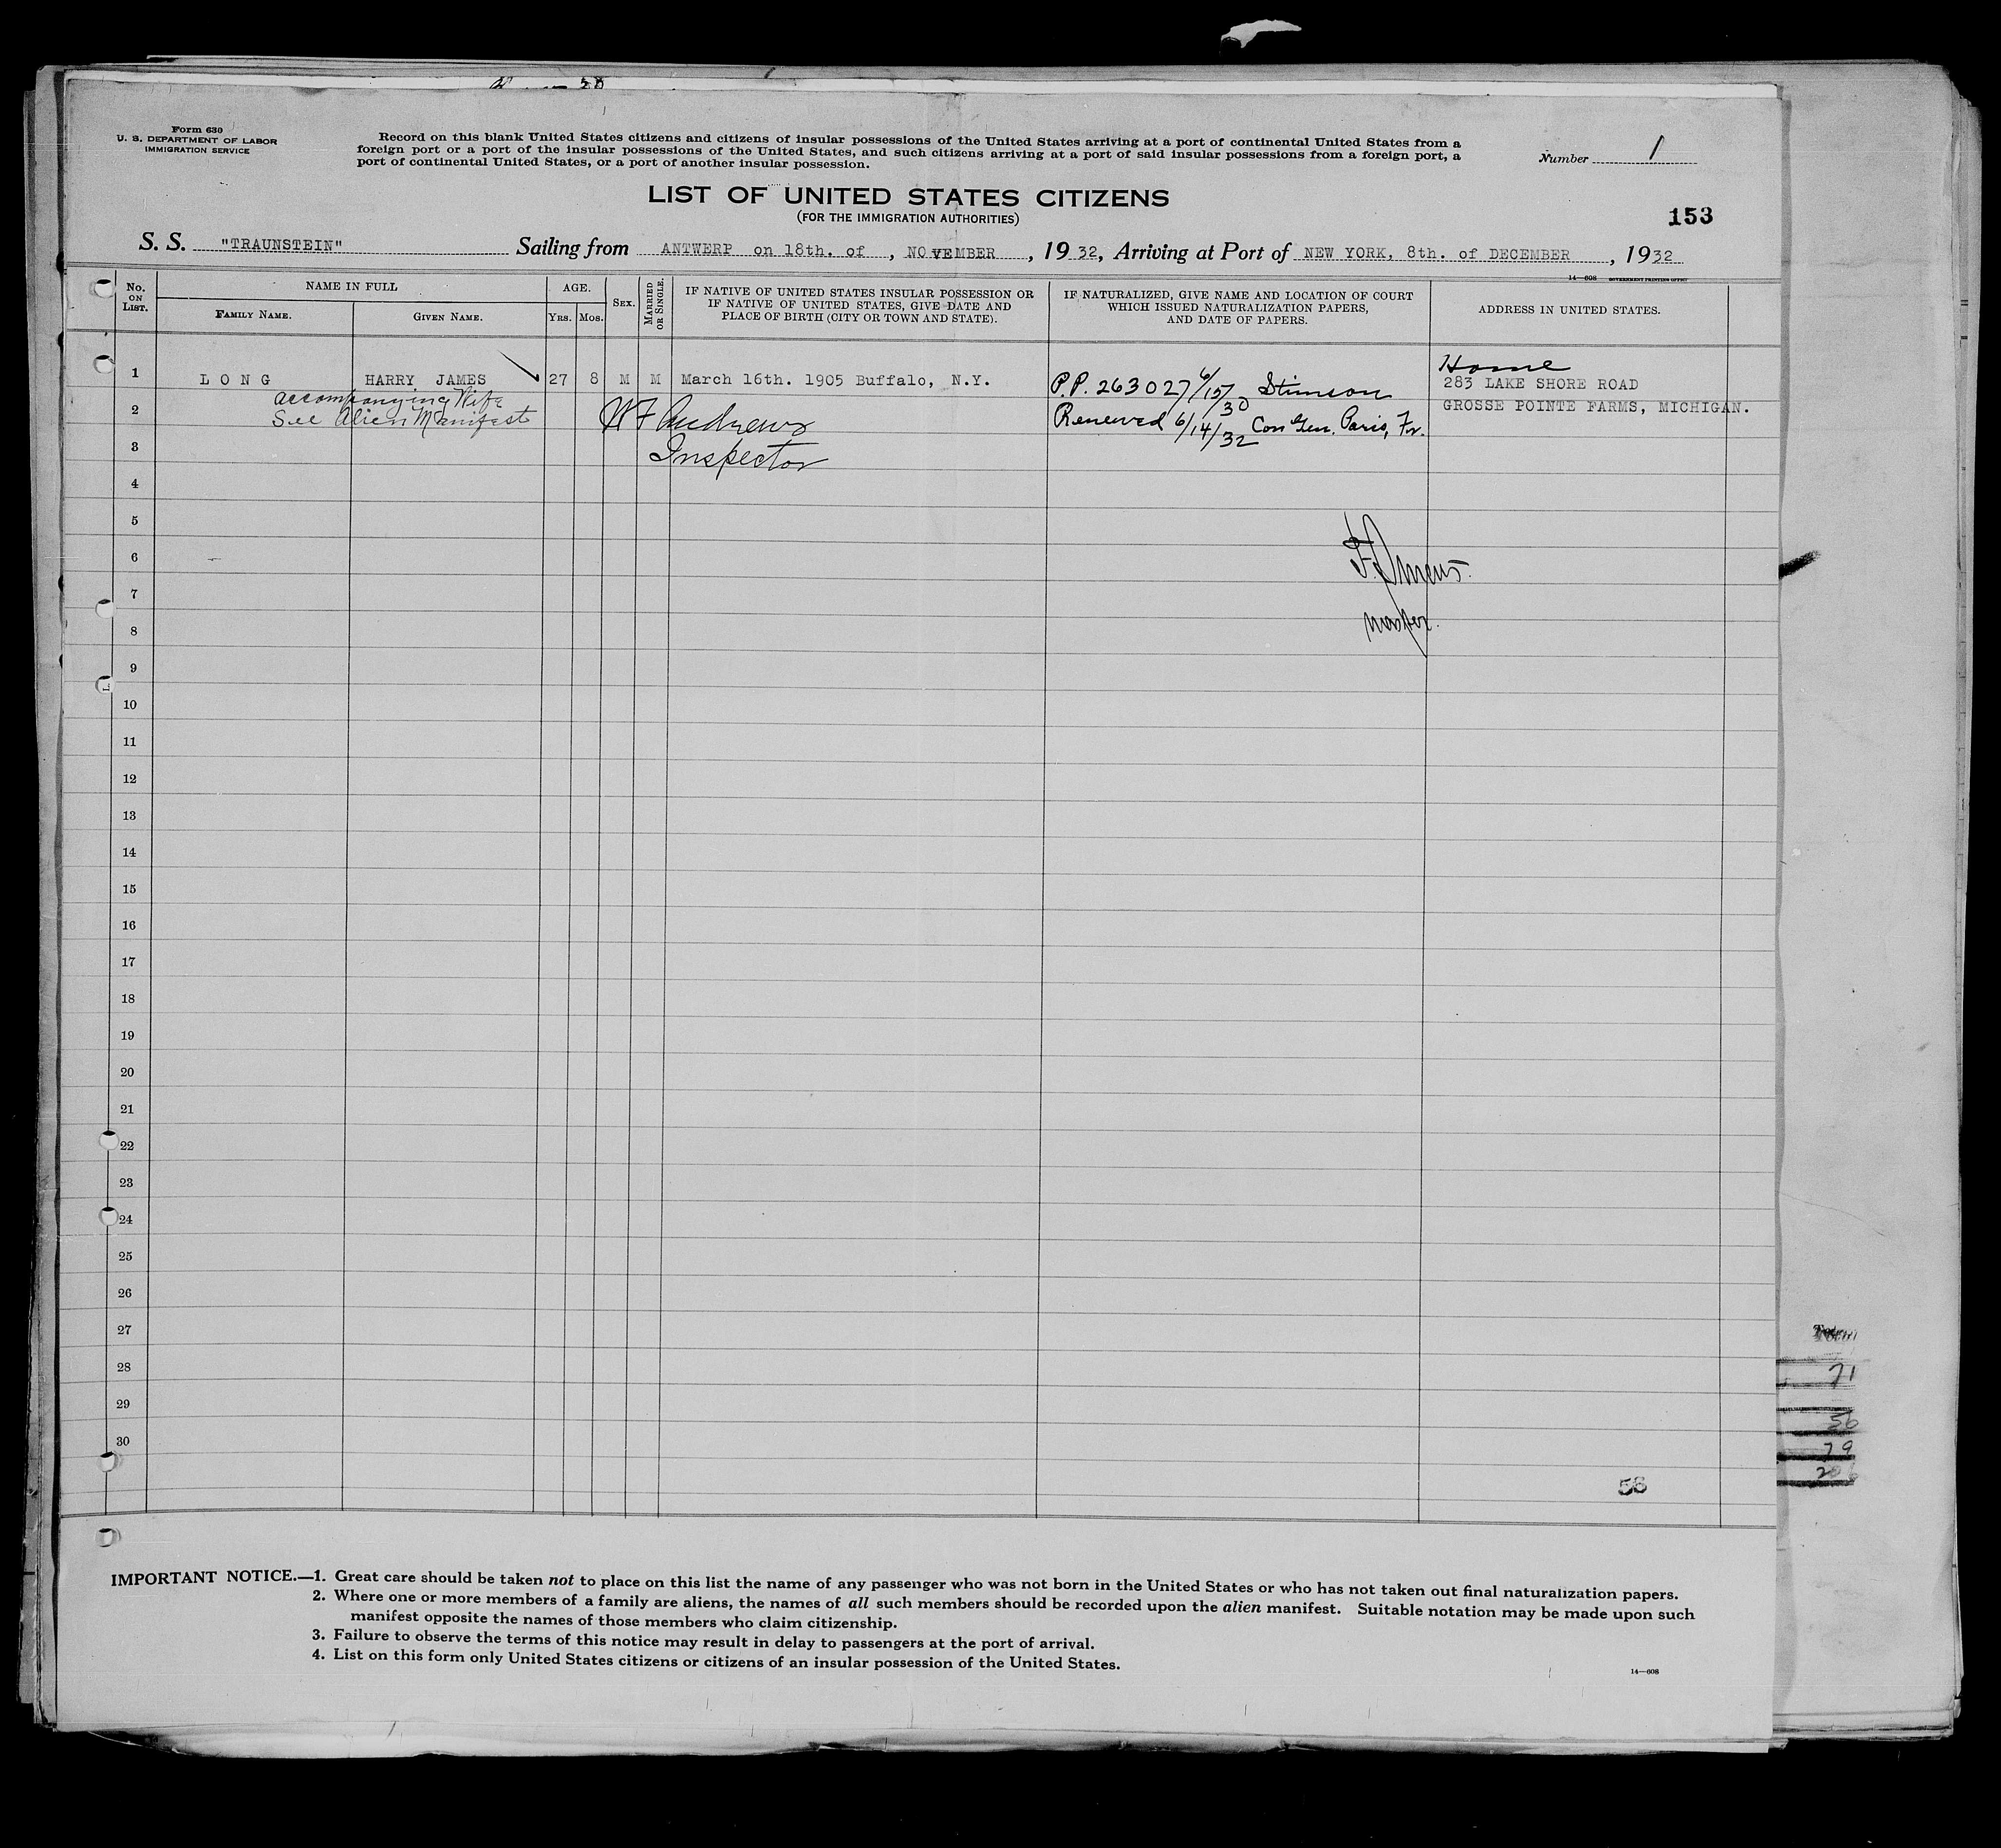 Form 630
U. S. DEPARTMENT OF LABOR
IMMIGRATION SERVICE
Record on this blank United States citizens and citizens of insular possessions of the United States arriving at a port of continental United States from a
foreign port or a port of the insular possessions of the United States, and such citizens arriving at a port of said insular possessions from a foreign port, a
port of continental United States, or a port of another insular possession.
Number 1
LIST OF UNITED STATES CITIZENS
(FOR THE IMMIGRATION AUTHORITIES)
153
S. S. "TRAUNSTEIN" Sailing from ANTWERP on 18th. of , NOVEMBER , 19 32, Arriving at Port of NEW YORK, 8th. of DECEMBER , 1932
14—608 GOVERNMENT PRINTING OFFICE
No. ON LIST.
NAME IN FULL
FAMILY NAME.
GIVEN NAME.
AGE.
YRS.
MOS.
SEX.
MARRIED OR SINGLE.
IF NATIVE OF UNITED STATES INSULAR POSSESSION OR
IF NATIVE OF UNITED STATES, GIVE DATE AND
PLACE OF BIRTH (CITY OR TOWN AND STATE).
IF NATURALIZED, GIVE NAME AND LOCATION OF COURT
WHICH ISSUED NATURALIZATION PAPERS,
AND DATE OF PAPERS.
ADDRESS IN UNITED STATES.
Home
1 LONG HARRY JAMES 27 8 M M March 16th. 1905 Buffalo, N.Y. P.P. 263027 6/15/30 Stimson 283 LAKE SHORE ROAD
accompanying Wife
GROSSE POINTE FARMS, MICHIGAN.
2 See Alien Manifest W F Andrews Renewed 6/14/32 Con Gen. Paris, Fr.
3 Inspector
4
5
6
7
8 master.
9
10
11
12
13
14
15
16
17
18
19
20
21
22
23
24
25
26
27
28
29
30
58
71
56
79
206
IMPORTANT NOTICE.—1. Great care should be taken not to place on this list the name of any passenger who was not born in the United States or who has not taken out final naturalization papers.
2. Where one or more members of a family are aliens, the names of all such members should be recorded upon the alien manifest. Suitable notation may be made upon such
manifest opposite the names of those members who claim citizenship.
3. Failure to observe the terms of this notice may result in delay to passengers at the port of arrival.
4. List on this form only United States citizens or citizens of an insular possession of the United States.
14—608